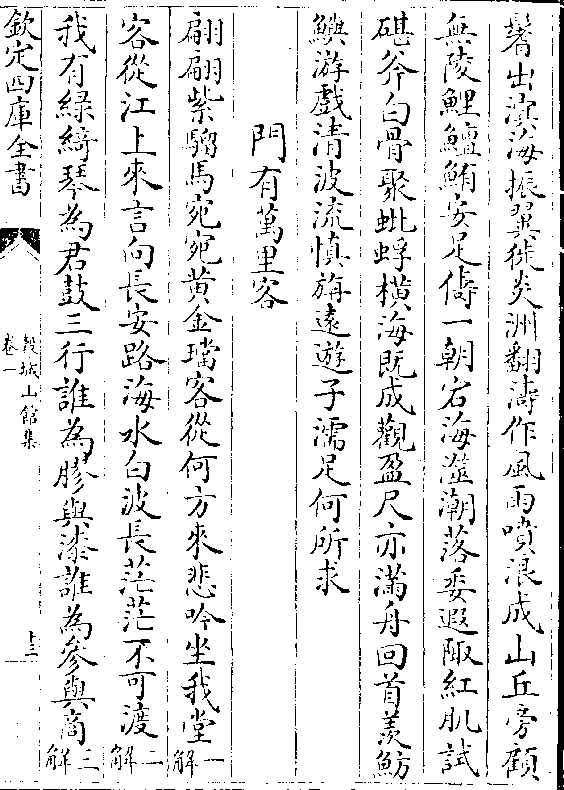 鬐出溟海振翼徙炎洲翻濤作風雨噴浪成山丘旁顧
無陵鯉鱣鮪安足儔一朝宕海澨潮落委遐陬紅肌試
碪斧白骨聚蚍蜉橫海既成觀盈尺亦滿舟回首羨魴
鱮游戲清波流慎旃遠遊子濡足何所求
門有萬里客
翩翩紫騮馬宛宛黃金璫客從何方來悲吟坐我堂一解
客從江上來言向長安路海水白波長茫茫不可渡二解
我有綠綺琴為君鼓三行誰為膠與漆誰為參與商三解
欽定四庫全書
穀城山館集
卷一
十三